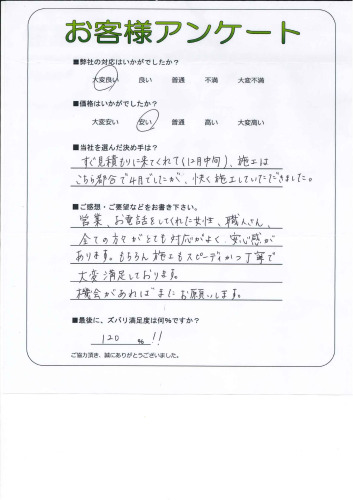 お客様アンケート
■弊社の対応はいかがでしたか？
大変良い 良い 普通 不満 大変不満
■価格はいかがでしたか？
大変安い 安い 普通 高い 大変高い
■当社を選んだ決め手は？
すぐ見積もりに来てくれて(12月中旬)、施工は
こちら都合で4月でしたが、快く施工していただきました。
■ご感想・ご要望などをお書き下さい。
営業、お電話をしてくれた女性、職人さん、
全ての方々がとても対応がよく、安心感が
あります。もちろん施工もスピーディかつ丁寧で
大変満足しております。
機会があればまたお願いします。
■最後に、ズバリ満足度は何%ですか？
120 % !!
ご協力頂き、誠にありがとうございました。